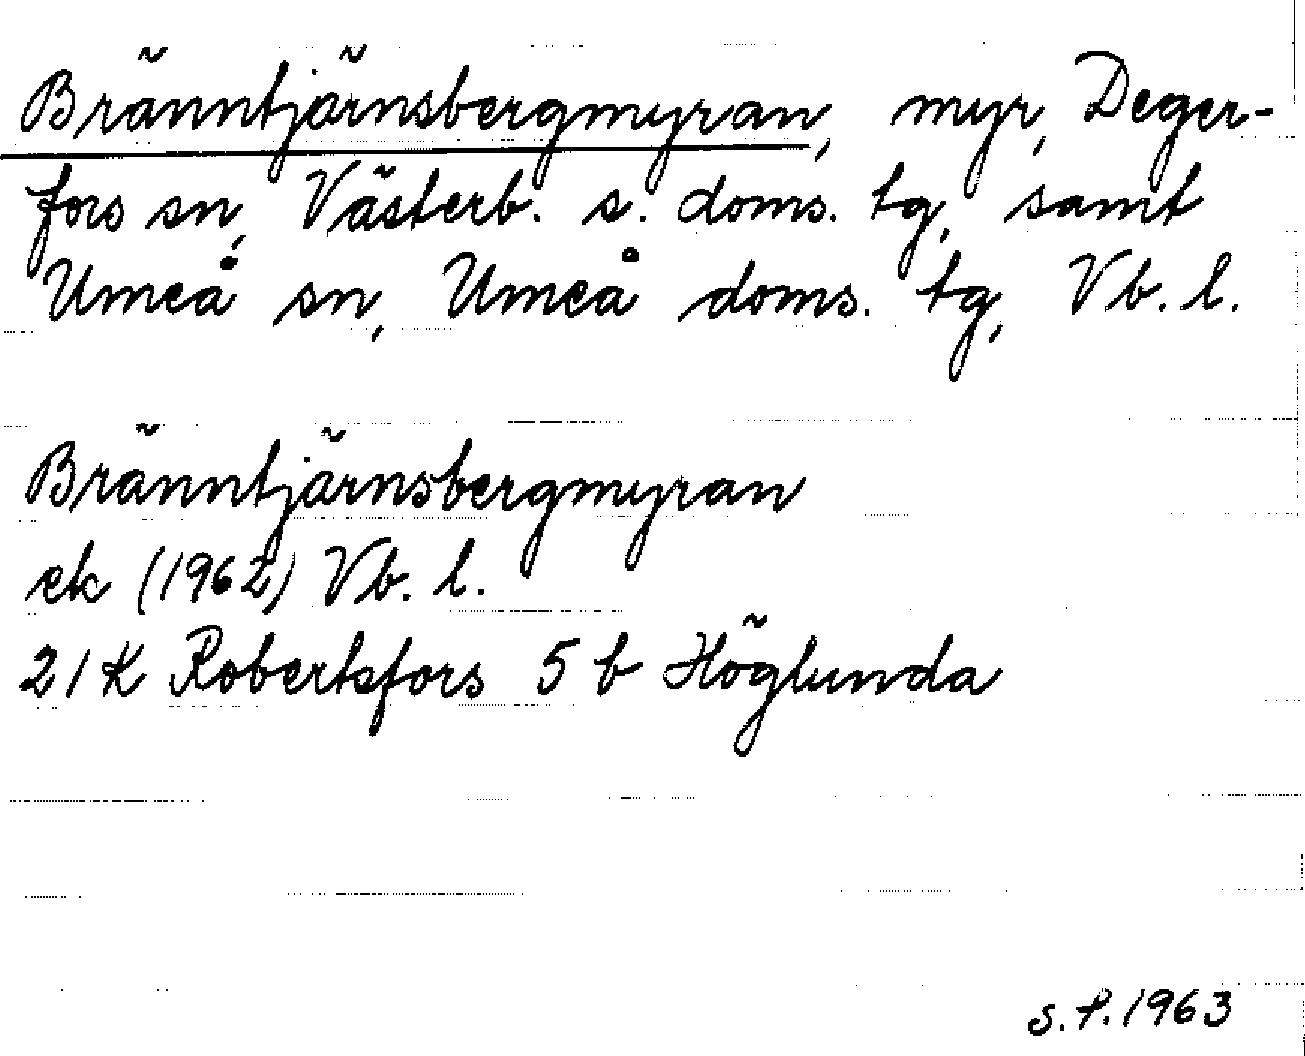 Bränntjärnsbergmyran, myr, Deger-
fors sn, Västerb. s. doms. tg, samt
Umeå sn, Umeå doms. tg, Vb. l.
Bränntjärnsbergmyran
ek (1962) Vb. l.
21K Robertsfors 5 b Höglunda
S.P. 1963